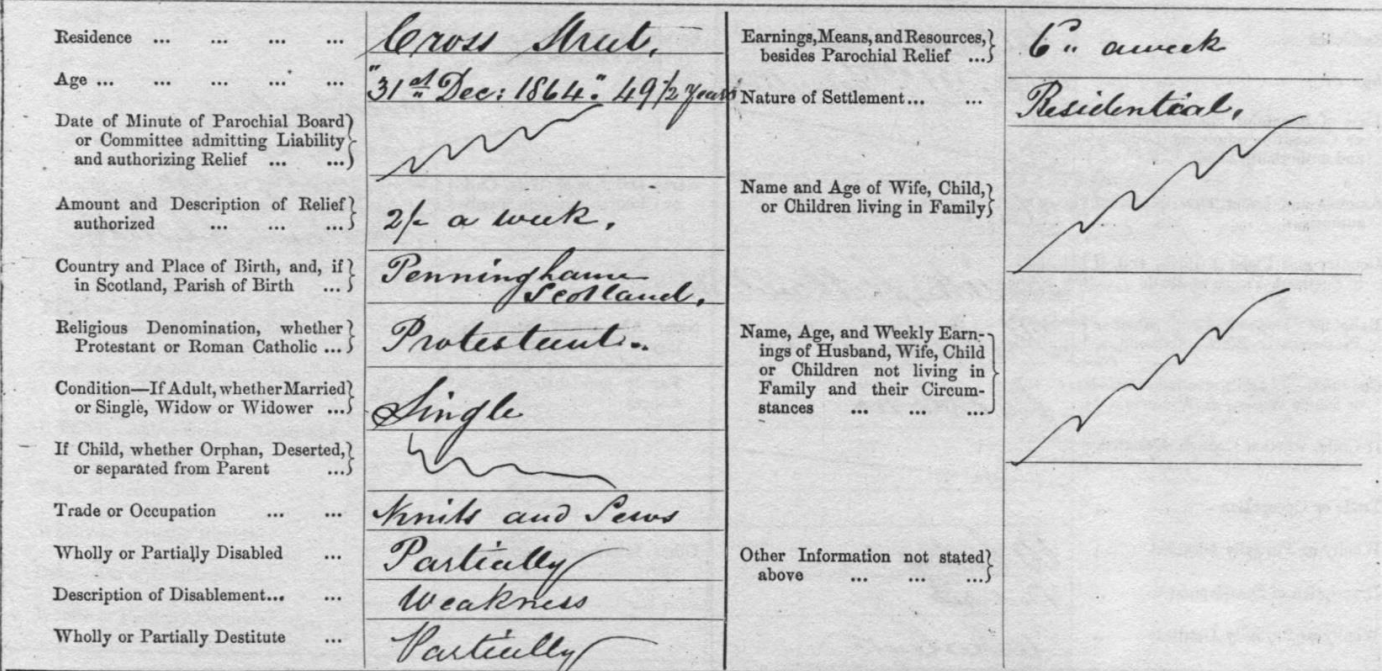 Residence ... ... ... ... Cross Street,
Age ... ... ... ... ... "31st Dec: 1864" 49 1/2 Years
Date of Minute of Parochial Board
or Committee admitting Liability
and authorizing Relief ... ...}
Amount and Description of Relief
authorized ... ... ...} 2/- a week.
Country and Place of Birth, and, if
in Scotland, Parish of Birth ...} Penninghame
Scotland.
Religious Denomination, whether
Protestant or Roman Catholic ...} Protestant.
Condition—If Adult, whether Married
or Single, Widow or Widower ...} Single
If Child, whether Orphan, Deserted,
or separated from Parent ...}
Trade or Occupation ... ... Knits and Sews
Wholly or Partially Disabled ... Partially
Description of Disablement... ... Weakness
Wholly or Partially Destitute ... Partially
Earnings, Means, and Resources,
besides Parochial Relief ...} 6" aweek
Nature of Settlement... ... Residential,
Name and Age of Wife, Child,
or Children living in Family}
Name, Age, and Weekly Earn-
ings of Husband, Wife, Child
or Children not living in
Family and their Circum-
stances ... ... ...}
Other Information not stated
above ... ... ...}